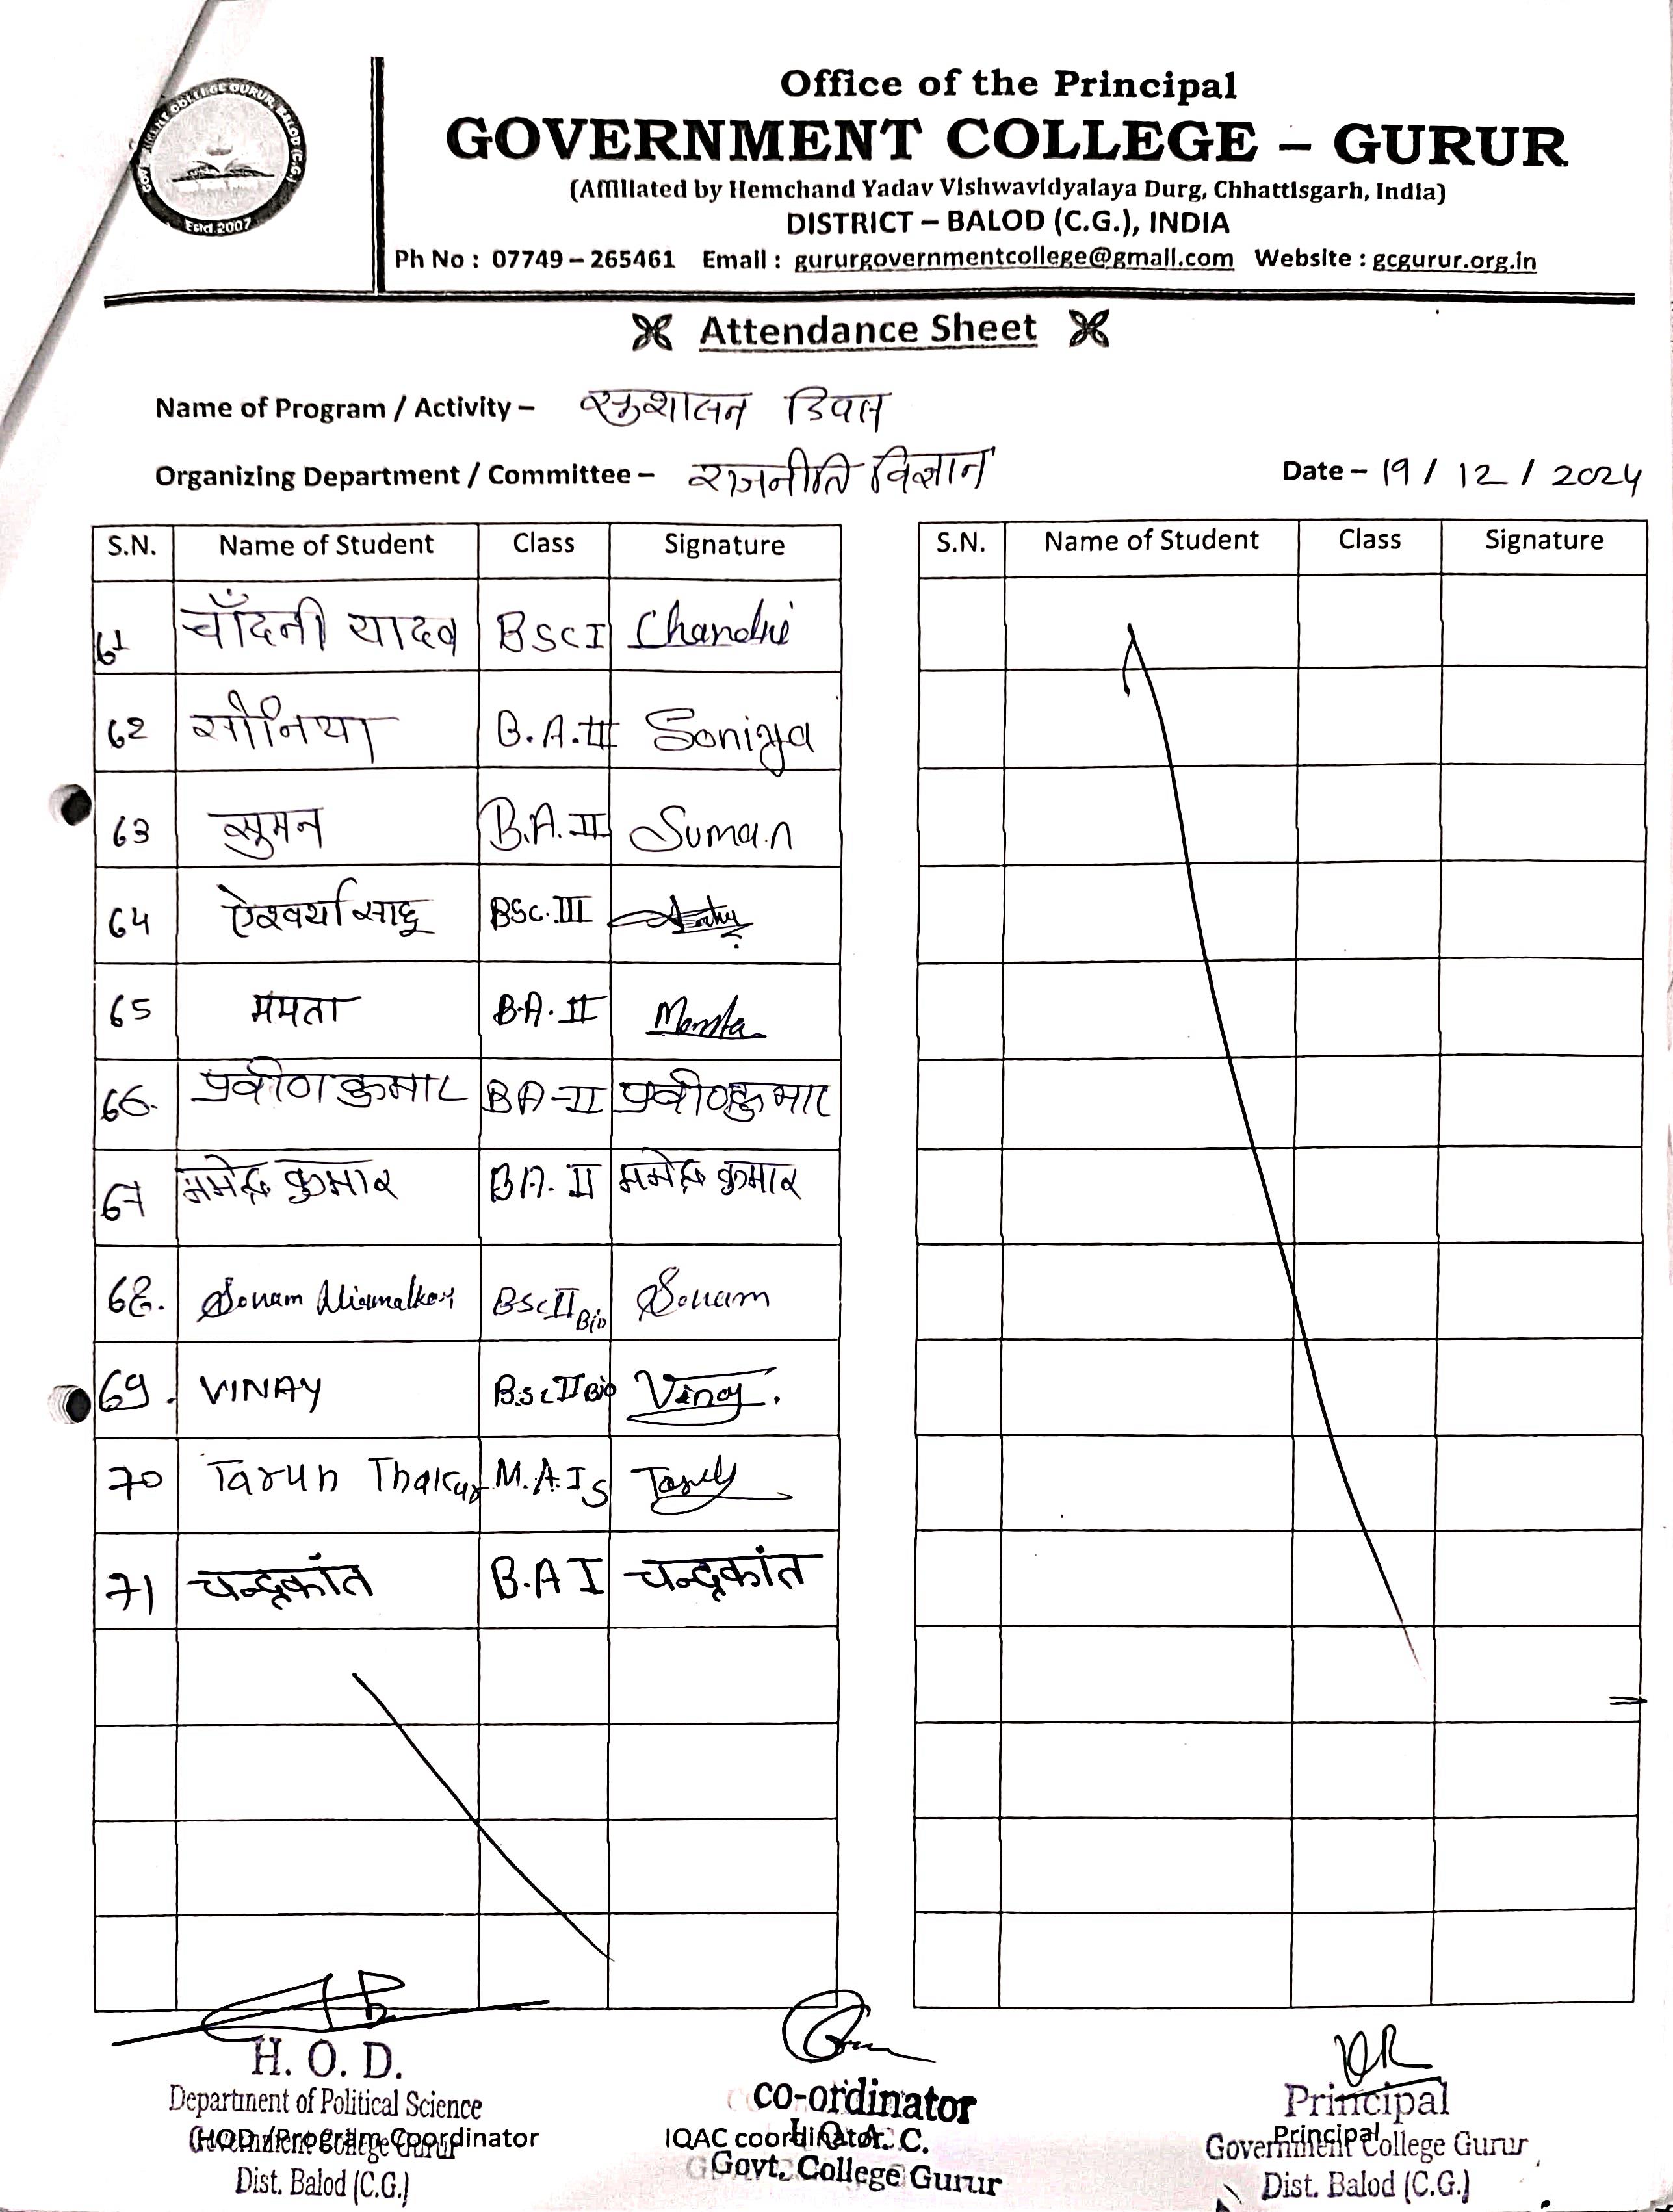 GOVERNMENT COLLEGE GURUR, BALOD (C.G.)
Estd.2007
Office of the Principal
GOVERNMENT COLLEGE – GURUR
(Affiliated by Hemchand Yadav Vishwavidyalaya Durg, Chhattisgarh, India)
DISTRICT – BALOD (C.G.), INDIA
Ph No : 07749 – 265461 Email : gururgovernmentcollege@gmail.com Website : gcgurur.org.in
Attendance Sheet
Name of Program / Activity – सुशासन दिवस
Organizing Department / Committee – राजनीति विज्ञान Date – 19 / 12 / 2024
S.N. Name of Student Class Signature S.N. Name of Student Class Signature
61 चाँदनी यादव BSC I Chandni
62 सोनिया B.A.III Soniya
63 सुमन B.A.II Suman
64 ऐश्वर्या साहू BSc.III
65 ममता B.A.II Mamta
66. प्रवीण कुमार BA-II प्रवीण कुमार
67 कुमार BA.II कुमार
68. Sonam Nirmalkar BSc II Bio Sonam
69. VINAY B.sc II Bio Vinay.
70 Tarun Thakur M.A.I S Tarun
71 चन्द्रकांत B.A I चन्द्रकांत
H. O. D.
Department of Political Science
HOD / Program Coordinator
Government College Gurur
Dist. Balod (C.G.)
co-ordinator
IQAC coordinator
I. Q. A. C.
Govt. College Gurur
Principal
Principal
Government College Gurur
Dist. Balod (C.G.)